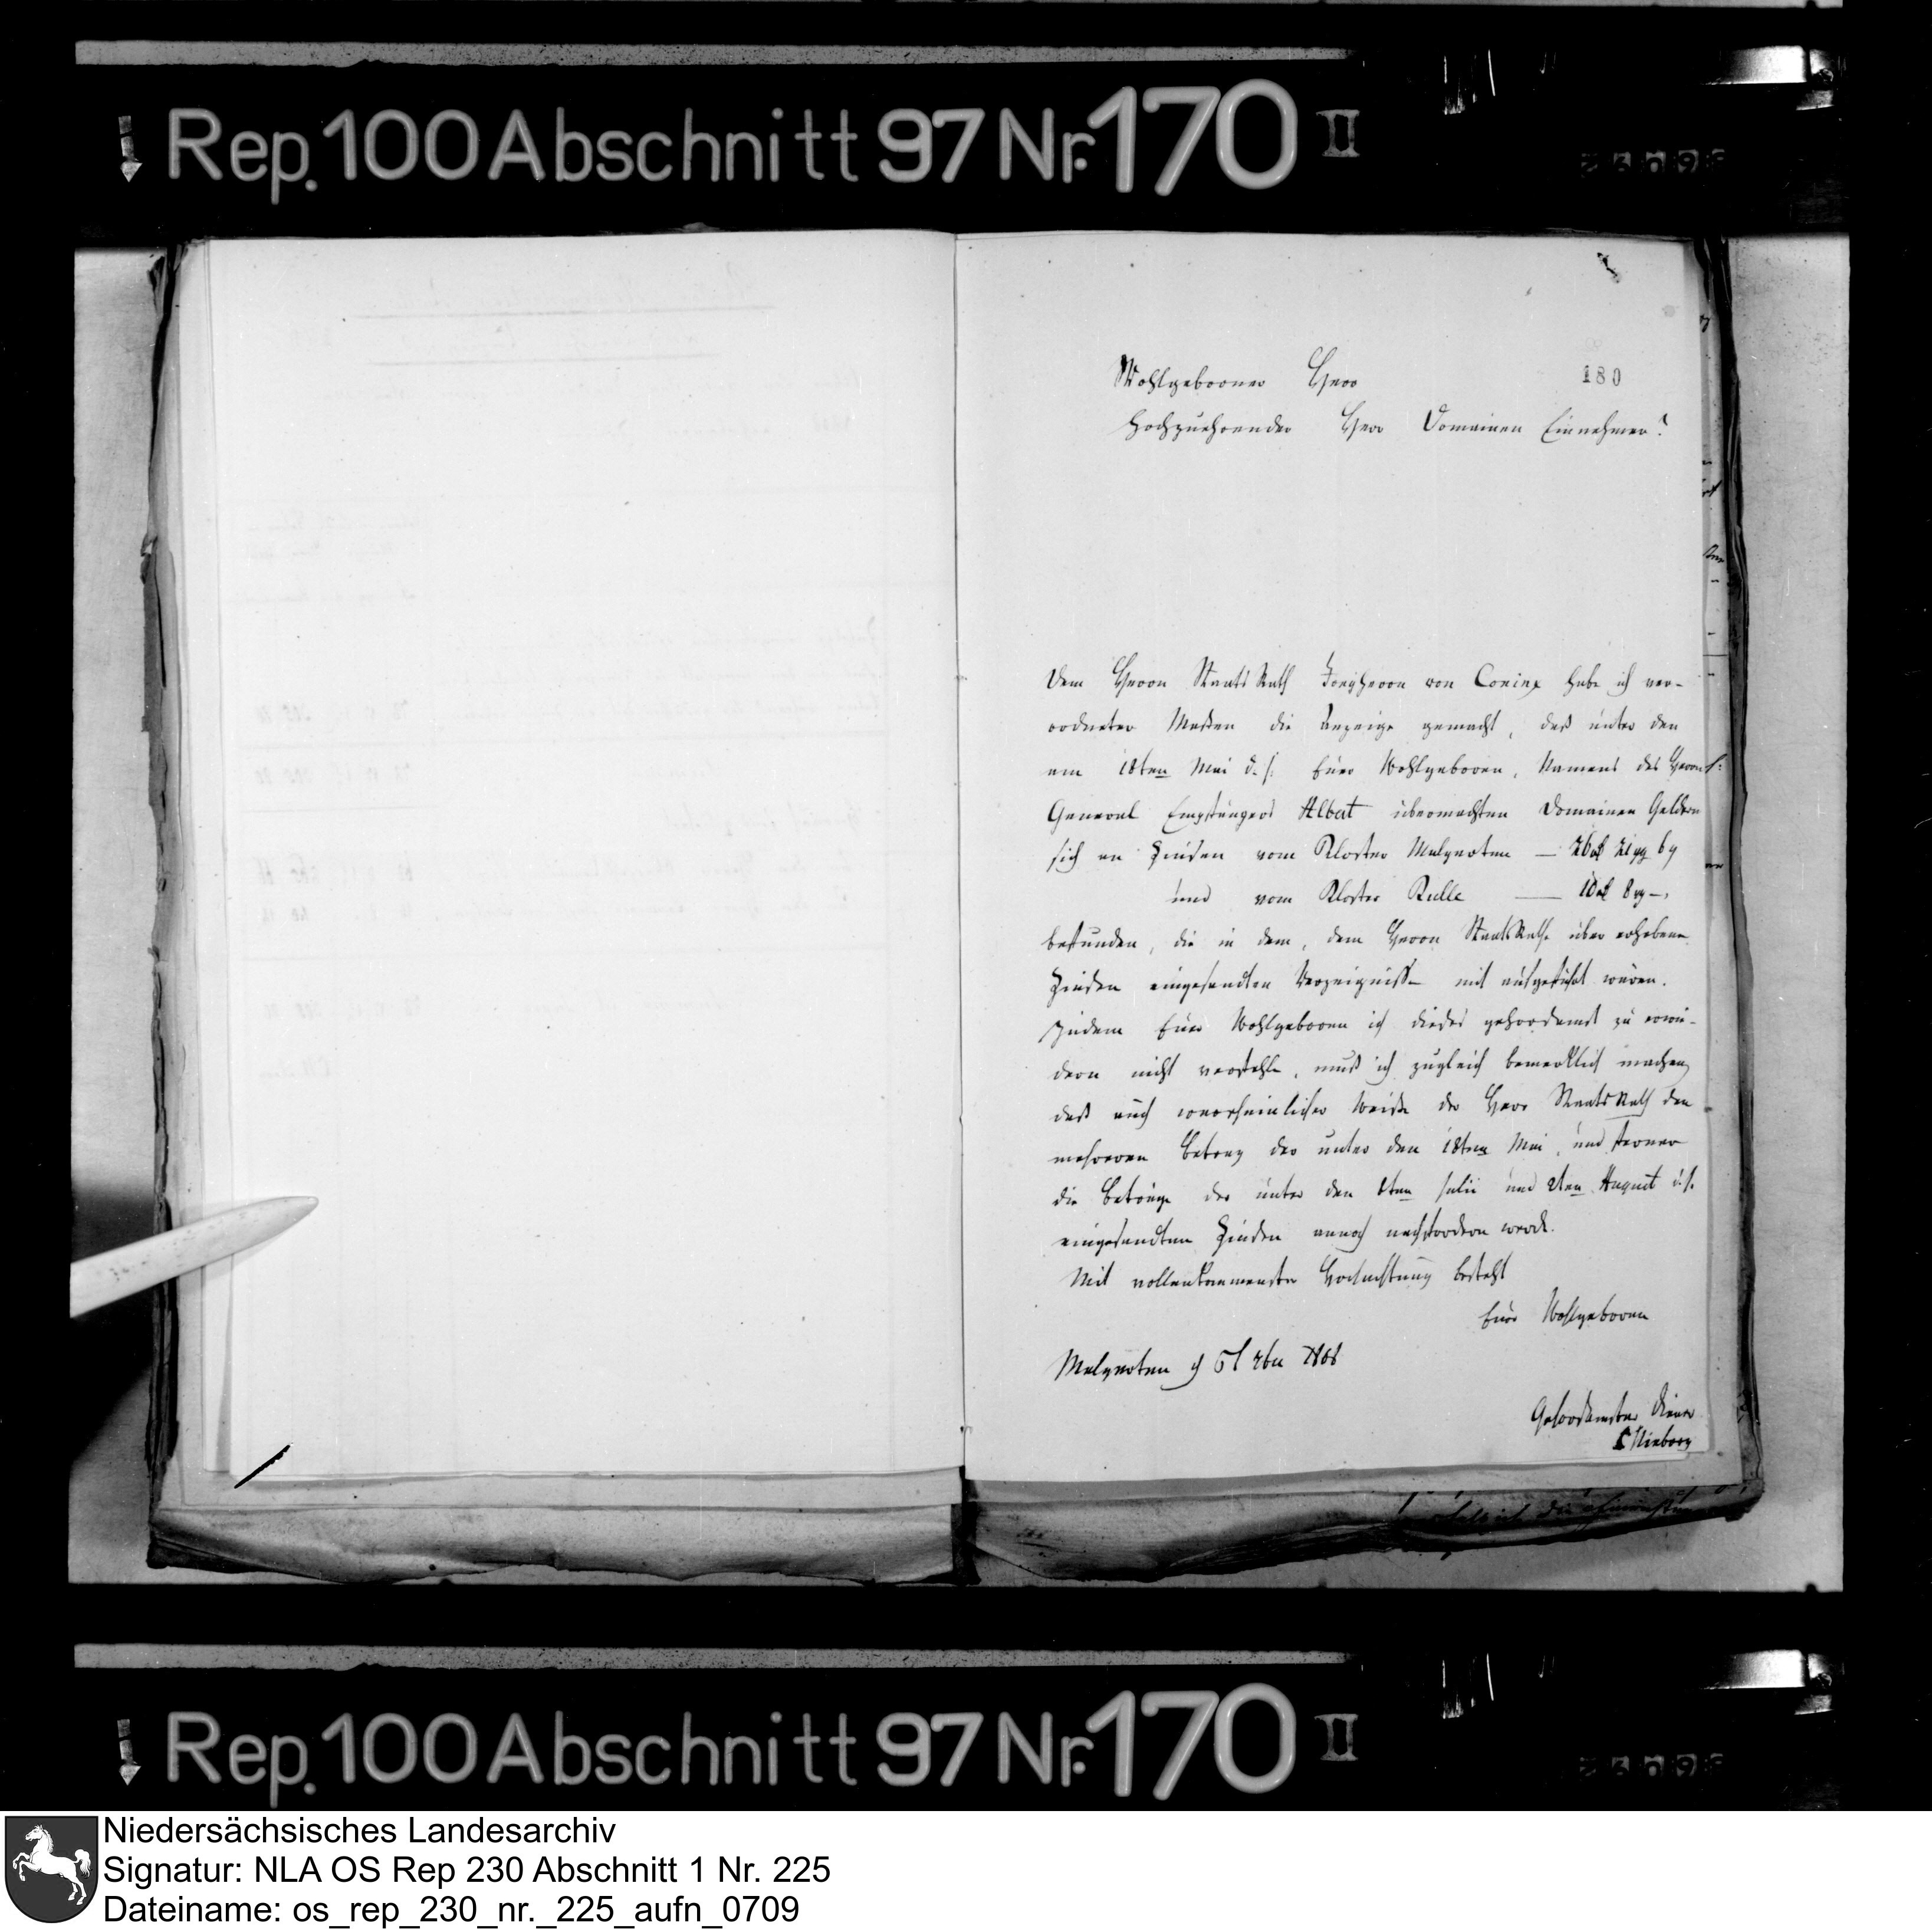 Rep. 100 Abschnitt 97 Nr. 170 II
180
Wohlgeborner Herr
Hochzuehrender Herr Domainen Einnehmer!
Dem Herrn Staats Rath Freyherrn von Coninx habe ich ver-
ordneter Maßen die Anzeige gemacht, daß unter den
am 18ten Mai d. J. Euer Wohlgeboren, Namens des Herrn
General Empfängers Albert übermachten Domainen Geldern
sich an Zinsen vom Kloster Malgarten — 26 21 6
und vom Kloster Rulle — 10 8 —
befunden, die in dem, dem Herrn Staats Rathe über erhobene
Zinsen eingesandten Verzeichnisse mit aufgeführt waren.
Indem Euer Wohlgeboren ich dieses gehorsamst zu erwie-
dern nicht verfehle, muß ich zugleich bemerklich machen,
daß auch wahrscheinlicher Weise der Herr Staats Rath den
mehreren Betrag der unter den 18ten Mai, und ferner
die Beträge der unter den ten Julii und 2ten August d. J.
eingesandten Zinsen annoch nachfordern werde.
Mit vollenkommenster Hochachtung besteht
Euer Wohlgeboren
Malgarten 1808
Gehorsamster Diener
Nieberg
Rep. 100 Abschnitt 97 Nr. 170 II
Niedersächsisches Landesarchiv
Signatur: NLA OS Rep 230 Abschnitt 1 Nr. 225
Dateiname: os_rep_230_nr._225_aufn_0709